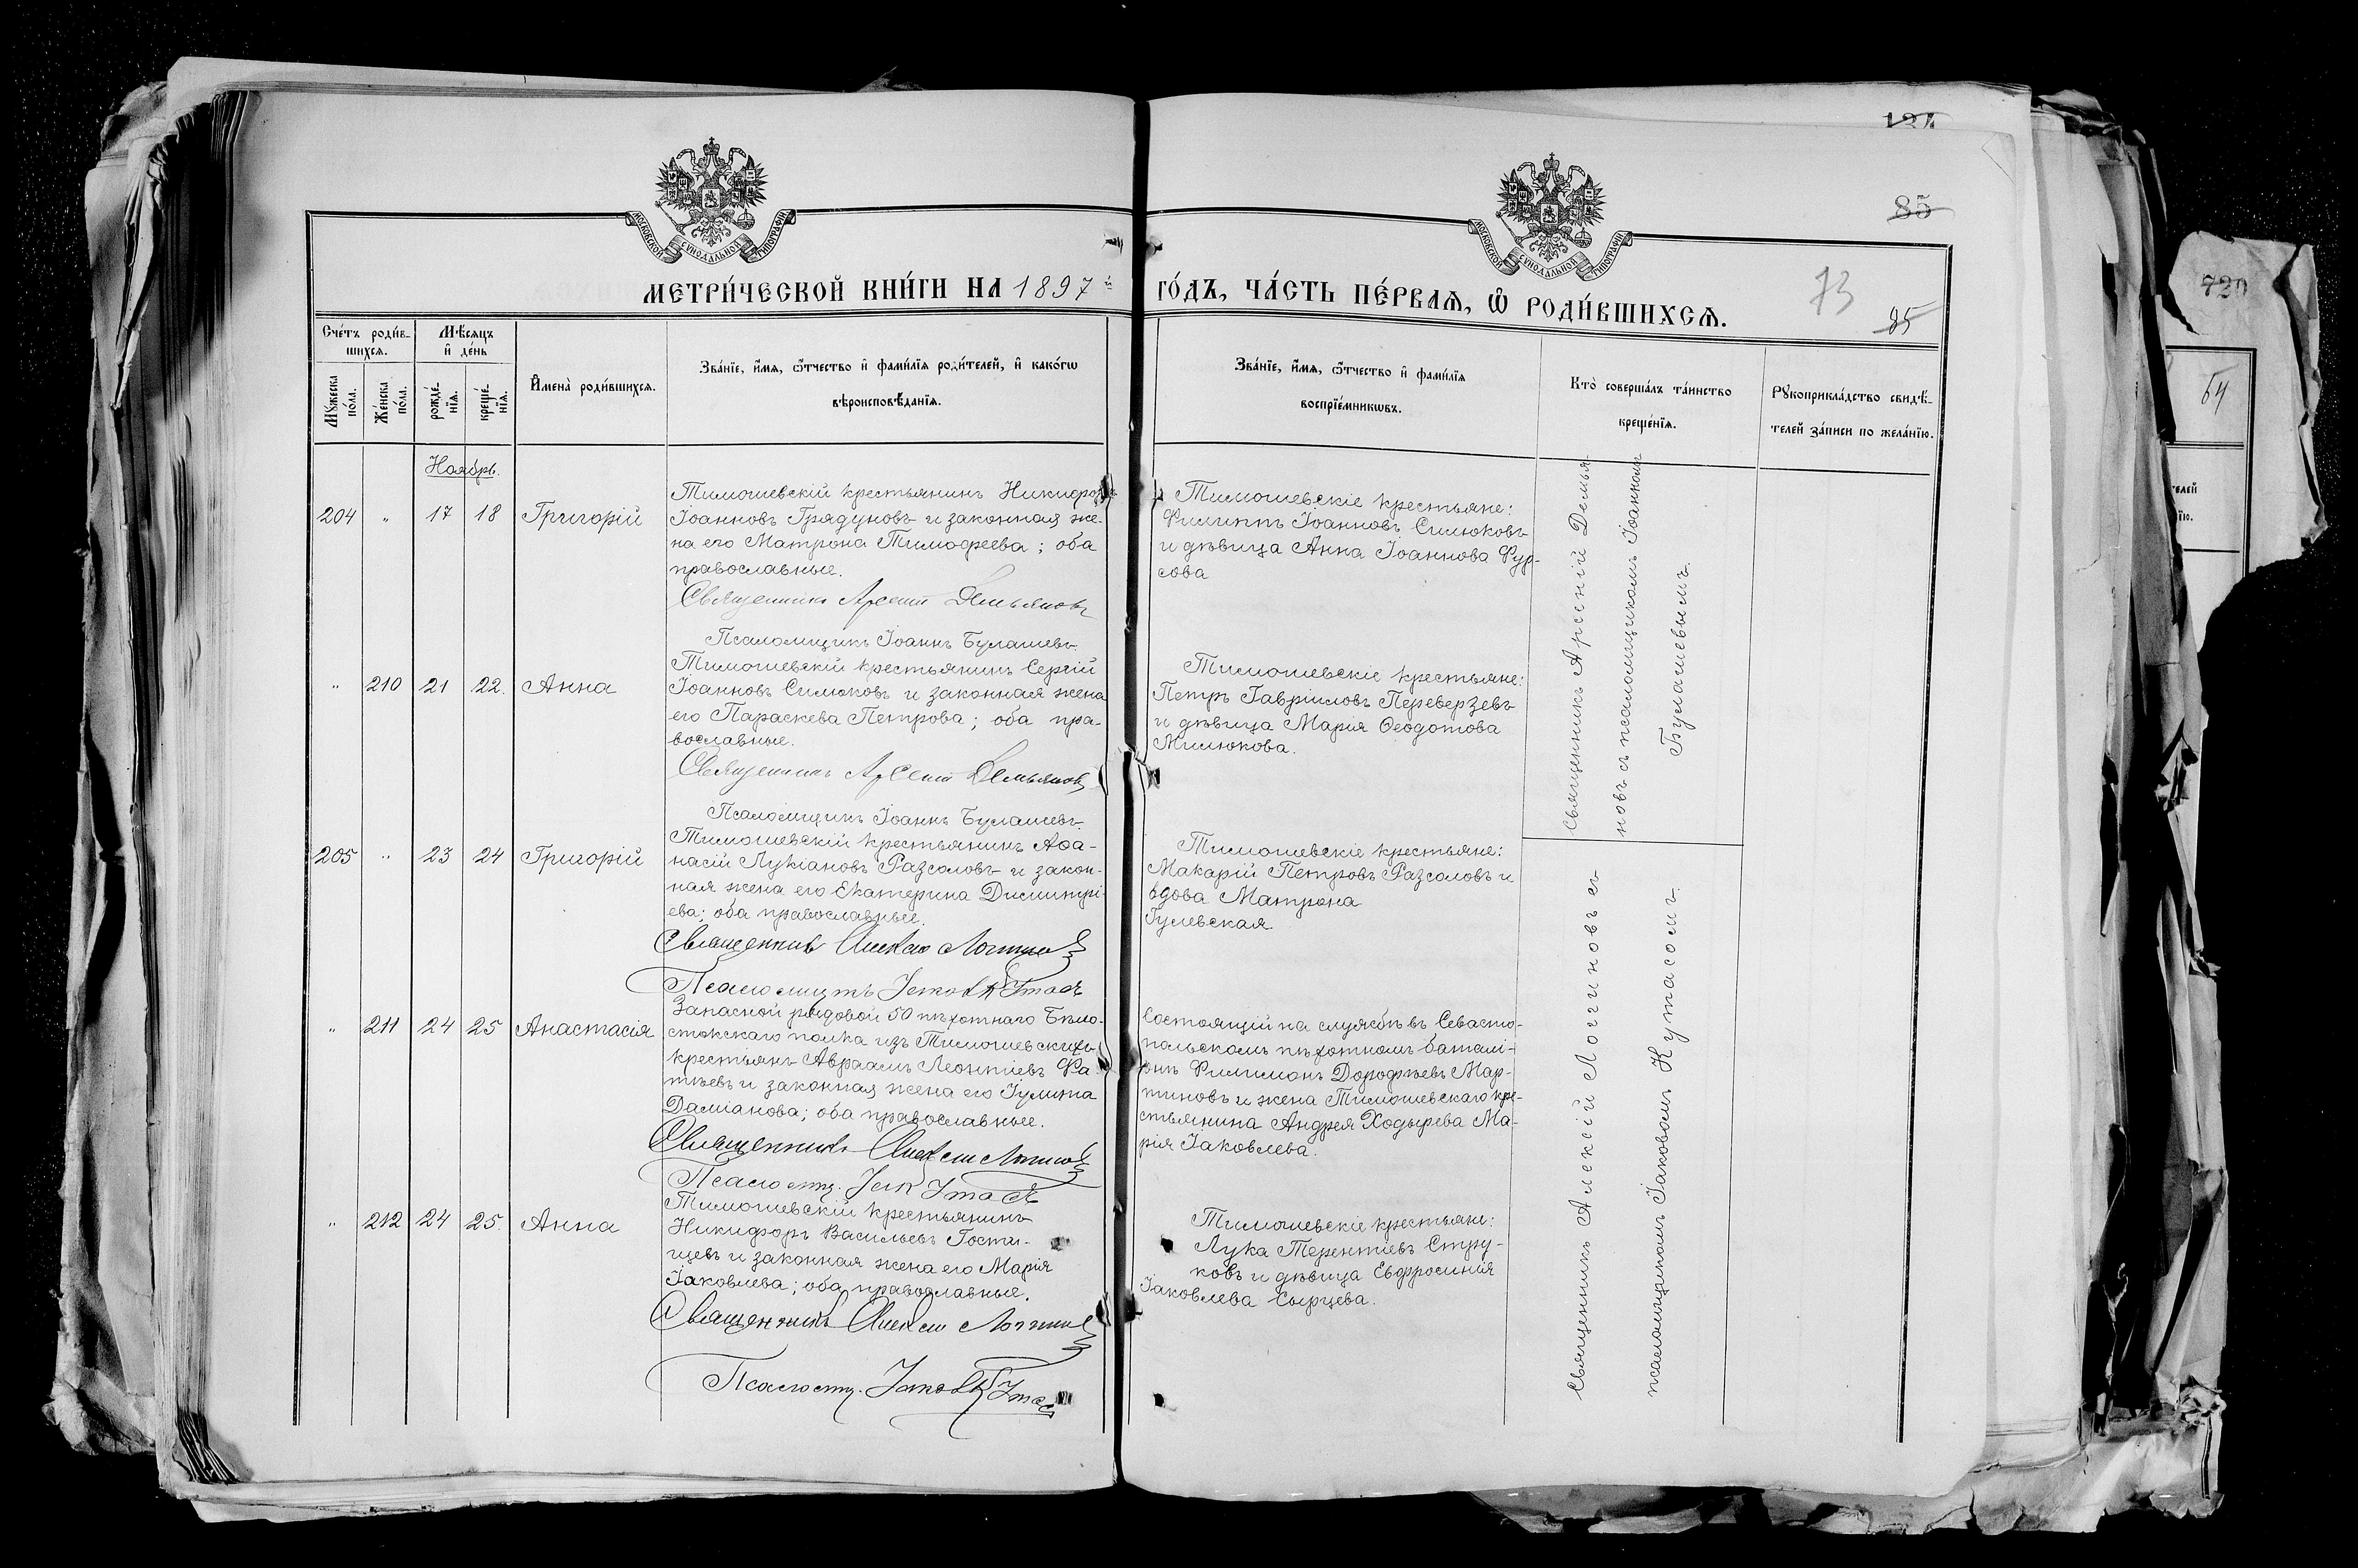 134
МОСКОВСКОЙ СѴНОДАЛЬНОЙ ТИПОГРАФІИ
МОСКОВСКОЙ СѴНОДАЛЬНОЙ ТИПОГРАФІИ
85
720
МЕТРИ́ЧЕСКОЙ КНИ́ГИ НА 1897й
ГО́ДЪ, ЧА́СТЬ ПЕ́РВАѦ, Ѿ РОДИ́ВШИХСѦ.
73
85
64
Сче́тъ роди́в-
шихсѧ.
Мꙋ́жеска по́ла.
Же́нска по́ла.
Мѣ́сѧцъ
и҆ де́нь
рожде́нїѧ.
креще́нїѧ.
И҆мена̀ роди́вшихсѧ.
Зва́нїе, и҆́мѧ, ѻ҆́тчество и҆ фами́лїѧ роди́телей, и҆ како́гѡ
вѣроисповѣ́данїѧ.
Зва́нїе, и҆́мѧ, ѻ҆́тчество и҆ фами́лїѧ
воспрїе́мникѡвъ.
Кто̀ соверша́лъ та́инство
креще́нїѧ.
Рꙋкоприкла́дство свидѣ́-
телей за́писи по жела́нїю.
Ноябрь.
204 „ 17 18 Григорій
Тимошевскій крестьянинъ Никифоръ
Іоанновъ Грядуновъ и законная же-
на его Матрона Тимофеева; оба
православные.
Священникъ Арсеній Демьяновъ
Псаломщикъ Іоаннъ Булашевъ
Тимошевскіе крестьяне:
Филиппъ Іоанновъ Симоковъ
и дѣвица Анна Іоаннова Фур-
сова
Священникъ Арсеній Демья-
новъ съ псаломщикомъ Іоанномъ
Булашевымъ.
„ 210 21 22. Анна
Тимошевскій крестьянинъ Сергій
Іоанновъ Симоковъ и законная жена
его Параскева Петрова; оба пра-
вославные.
Священникъ Арсеній Демьяновъ
Псаломщикъ Іоаннъ Булашевъ
Тимошевскіе крестьяне:
Петръ Гавріиловъ Переверзевъ
и дѣвица Марія Ѳеодотова
Милюкова.
205 „ 23 24 Григорій
Тимошевскій крестьянинъ Аѳа-
насій Лукіановъ Разсоловъ и закон-
ная жена его Екатерина Димитрі-
ева; оба православные.
Священникъ Алексій Логгиновъ
Псаломщикъ Іаковъ Кутасъ
Тимошевскіе крестьяне:
Макарій Петровъ Разсоловъ и
вдова Матрона
Гулевская
Священникъ Алексій Логгиновъ съ
псаломщикомъ Іаковомъ Кутасомъ.
„ 211 24 25 Анастасія
Запасной рядовой 50 пѣхотнаго Бѣло-
стокскаго полка изъ Тимошевскихъ
крестьянъ Авраамъ Леонтіевъ Фа-
тѣевъ и законная жена его Іулитта
Даміанова; оба православные.
Священникъ Алексій Логгиновъ
Псаломщ. Іак Кутасъ
Состоящій на службѣ въ Севасто-
польскомъ пѣхотномъ баталі-
онѣ Филимонъ Дорофѣевъ Мар-
тиновъ и жена Тимошевскаго кре-
стьянина Андрея Ходырева Ма-
рія Іаковлева.
„ 212 24 25. Анна
Тимошевскій крестьянинъ
Никифоръ Васильевъ Гости-
щевъ и законная жена его Марія
Іаковлева; оба православные.
Священникъ Алексій Логгиновъ
Псаломщ. Іаковъ Кутасъ
Тимошевскіе крестьяне:
Лука Терентіевъ Стру-
ковъ и дѣвица Евфросинія
Іаковлева Сырцева.